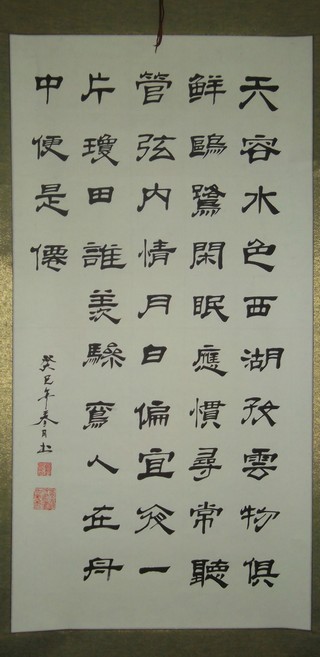 天容水色西湖好雲物俱
鮮鷗鷺閑眠應慣尋常聽
管弦内情月白偏宜夜一
片瓊田誰羨驂鸞人在舟
中便是僊
癸巳年春月书